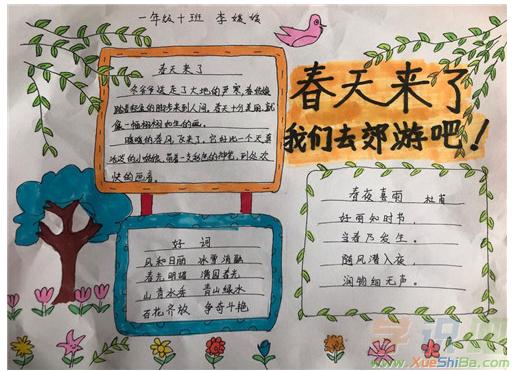 一年级十班 李媛
春天来了
冬爷爷送走了大地的严寒，春姑娘
踏着轻盈的脚步来到人间。春天十分美丽，就
像一幅栩栩如生的画。
暖暖的春风飞来了，它好比一个天真
活泼的小姑娘，带着一支彩色的神笔，到处欢
快的画着。
春天来了
我们去郊游吧！
好词
风和日丽 冰雪消融
春光明媚 满园春光
山青水秀 青山绿水
百花齐放 争奇斗艳
春夜喜雨 杜甫
好雨知时节，
当春乃发生。
随风潜入夜，
润物细无声。
学识吧
www.XueShiBa.com